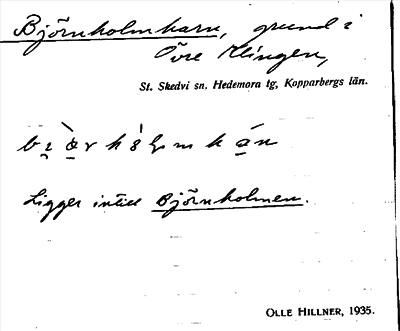 Björnholmkarn, grund i
Övre Klingen,
St. Skedvi sn, Hedemora tg, Kopparbergs län.
Ligger intill Björnholmen.
OLLE HILLNER, 1935.